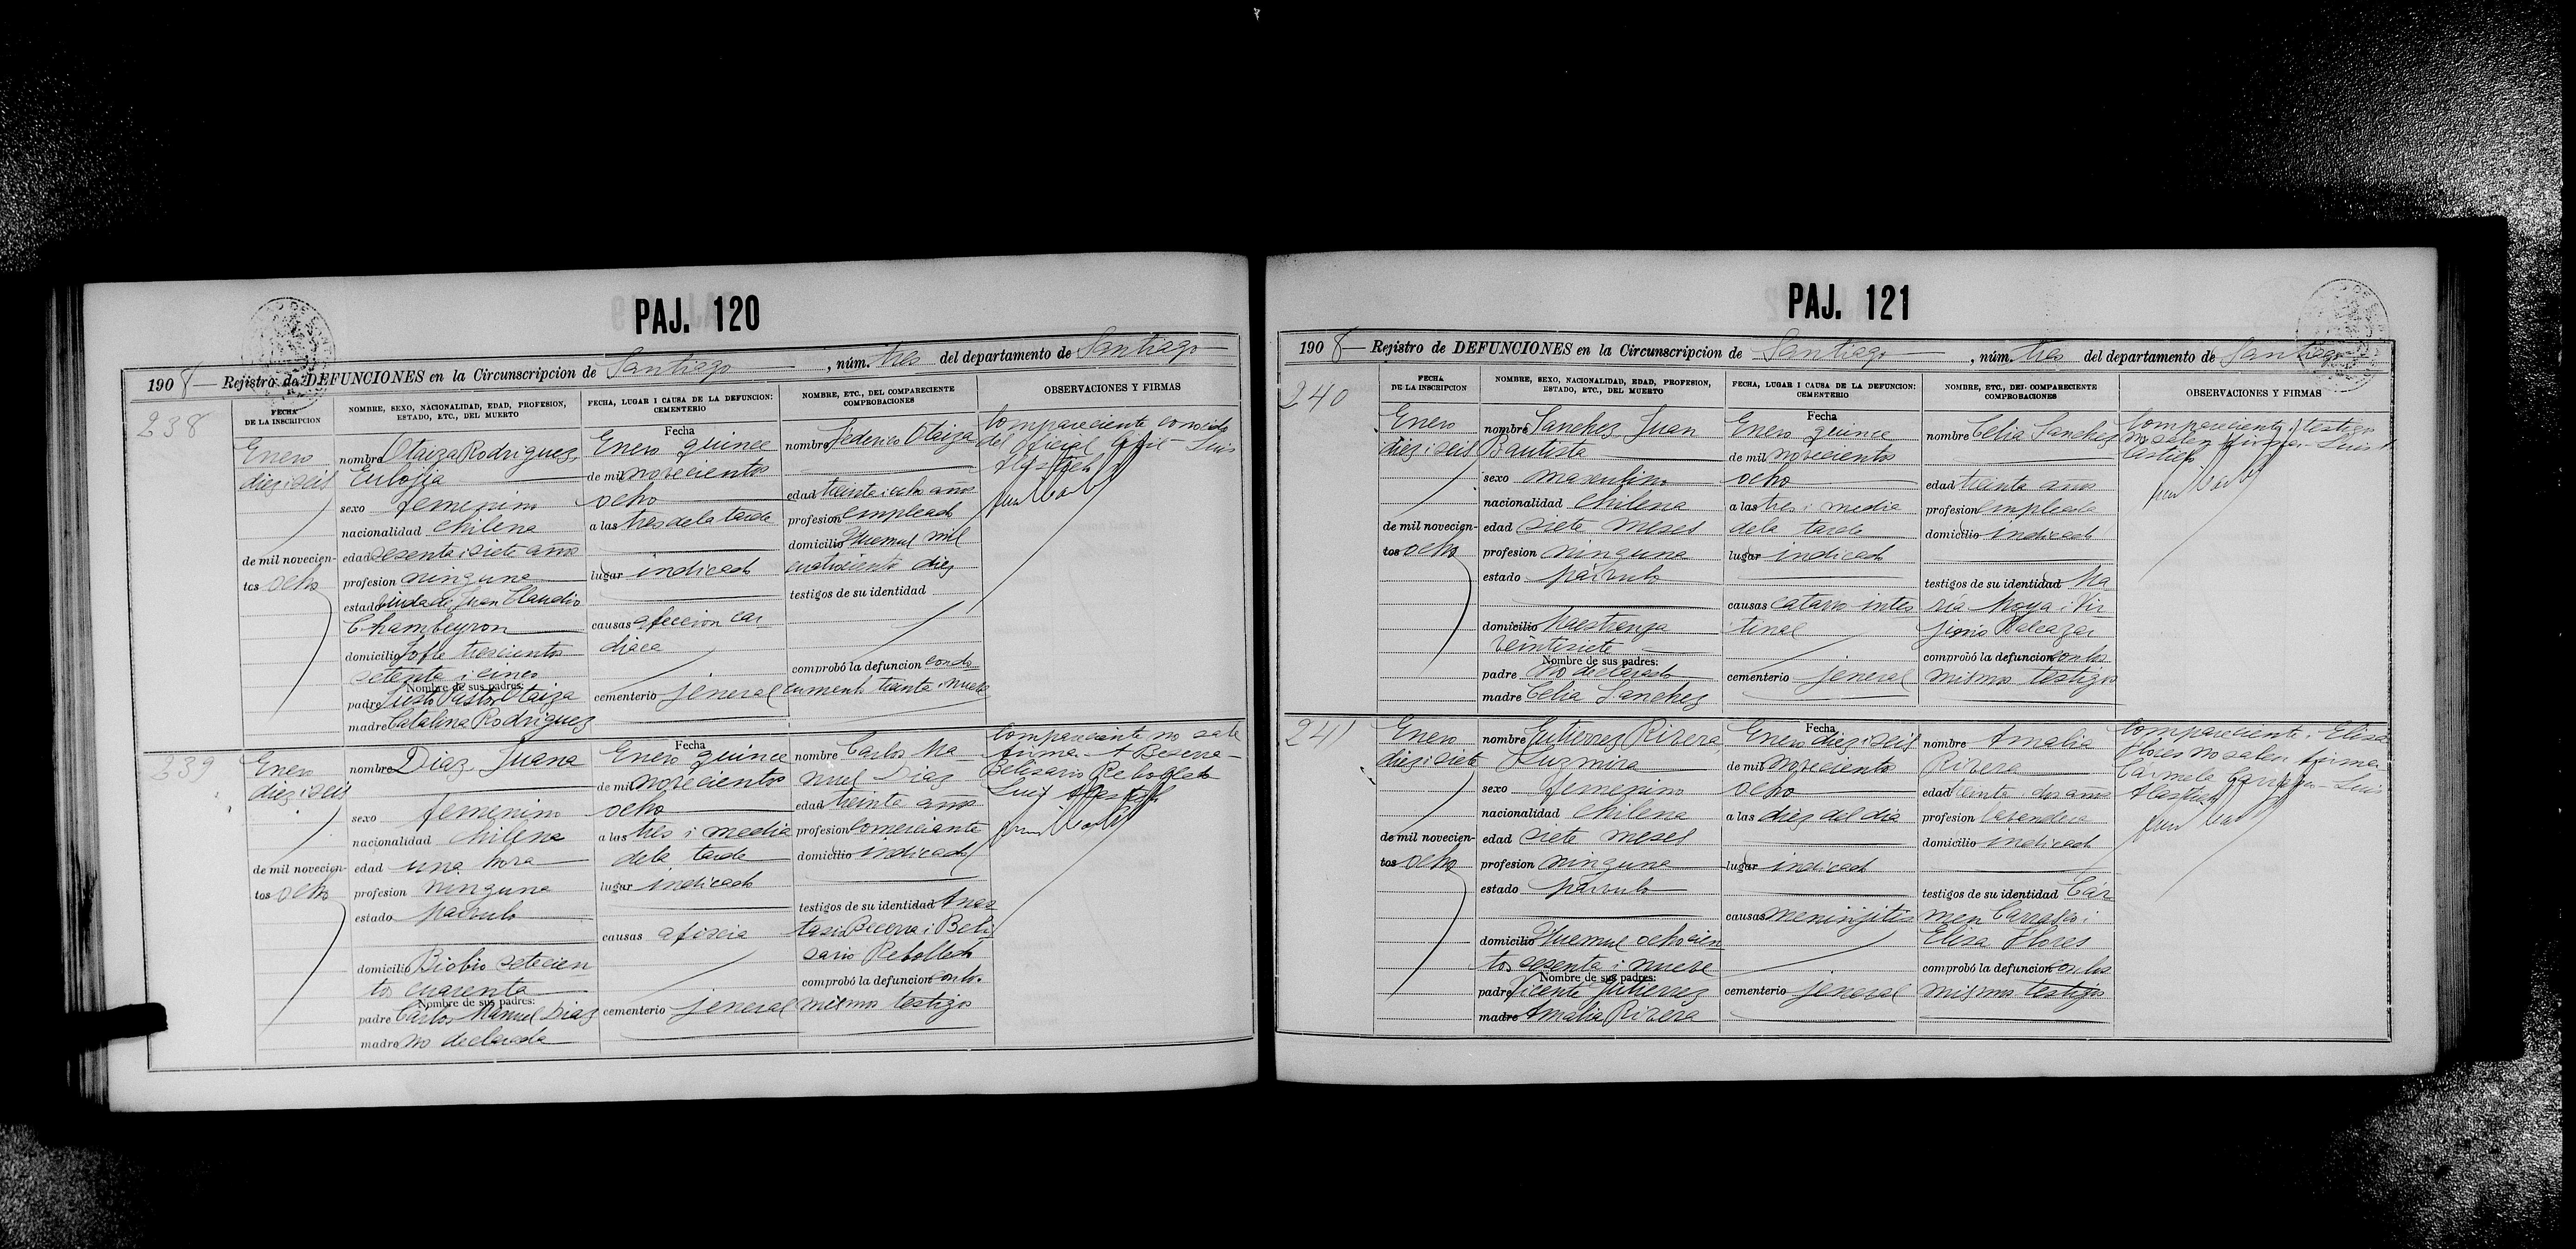 PAJ. 120
1908 — Rejistro de DEFUNCIONES en la Circunscripcion de Santiago, núm. tres del departamento de Santiago
238
FECHA DE LA INSCRIPCION
Enero
diez i seis
de mil novecien-
tos ocho
NOMBRE, SEXO, NACIONALIDAD, EDAD, PROFESION,
ESTADO, ETC., DEL MUERTO
nombre Otaiza Rodriguez,
Eulojia
sexo femenino
nacionalidad chilena
edad sesenta i siete años
profesion ninguna
estado viuda de Juan Claudio
Chambeyron
domicilio Tofte trescientos
setenta i cinco
Nombre de sus padres:
padre Justo Pastor Otaiza
madre Catalina Rodriguez
FECHA, LUGAR I CAUSA DE LA DEFUNCION:
CEMENTERIO
Fecha
Enero quince
de mil novecientos
ocho
a las tres de la tarde
lugar indicado
causas afeccion car-
diaca
cementerio jeneral
NOMBRE, ETC., DEL COMPARECIENTE
COMPROBACIONES
nombre Federico Otaiza
edad treinta i ocho años
profesion empleado
domicilio Huemul mil
cuatrociento diez
testigos de su identidad
comprobó la defuncion con do-
cumento treinta i nueve
OBSERVACIONES Y FIRMAS
Compareciente conocido
del oficial civil - Luis
239
Enero
diez i seis
de mil novecien-
tos ocho
nombre Diaz, Juana
sexo femenino
nacionalidad chilena
edad una hora
profesion ninguna
estado párvulo
domicilio Biobio setecien
tos cuarenta
Nombre de sus padres:
padre Cárlos Manuel Diaz
madre no declarada
Fecha
Enero quince
de mil novecientos
ocho
a las tres i media
de la tarde
lugar indicado
causas afixia
cementerio jeneral
nombre Carlos Ma-
nuel Diaz
edad treinta años
profesion comerciante
domicilio indicado
testigos de su identidad Anas
tasio Becerra i Beli
sario Rebolledo
comprobó la defuncion con los
mismos testigos
Compareciente no sabe
firmar - A Becerra -
Belisario Rebolledo
Luis
PAJ. 121
1908 — Rejistro de DEFUNCIONES en la Circunscripcion de Santiago, núm. tres del departamento de Santiago
240
FECHA
DE LA INSCRIPCION
Enero
diez i seis
de mil novecien-
tos ocho
NOMBRE, SEXO, NACIONALIDAD, EDAD, PROFESION,
ESTADO, ETC., DEL MUERTO
nombre Sanchez, Juan
Bautista
sexo masculino
nacionalidad chilena
edad siete meses
profesion ninguna
estado párvulo
domicilio Maestranza
veintisiete
Nombre de sus padres:
padre no declarado
madre Celia Sanchez
FECHA, LUGAR I CAUSA DE LA DEFUNCION:
CEMENTERIO
Fecha
Enero quince
de mil novecientos
ocho
a las tres i media
de la tarde
lugar indicado
causas catarro intes
tinal
cementerio jeneral
NOMBRE, ETC., DEL COMPARECIENTE
COMPROBACIONES
nombre Celia Sanchez
edad treinta años
profesion empleada
domicilio indicado
testigos de su identidad Ma
ría Moya i Vir
jinia Alcazar
comprobó la defuncion con los
mismos testigos
OBSERVACIONES Y FIRMAS
Compareciente i testigos
no saben firmar - Luis
241
Enero
diez i siete
de mil novecien-
tos ocho
nombre Gutierrez Rivera,
Luzmira
sexo femenino
nacionalidad chilena
edad siete meses
profesion ninguna
estado párvulo
domicilio Huemul ochocien
tos sesenta i nueve
Nombre de sus padres:
padre Vicente Gutierrez
madre Amalia Rivera
Fecha
Enero diez i seis
de mil novecientos
ocho
a las diez del dia
lugar indicado
causas meninjitis
cementerio jeneral
nombre Amalia
Rivera
edad treinta i dos años
profesion lavandera
domicilio indicado
testigos de su identidad Cár
men Carrasco i
Elisa Flores
comprobó la defuncion con los
mismos testigos
Compareciente i Elisa
Flores no saben firmar
Cármela Carrasco - Luis